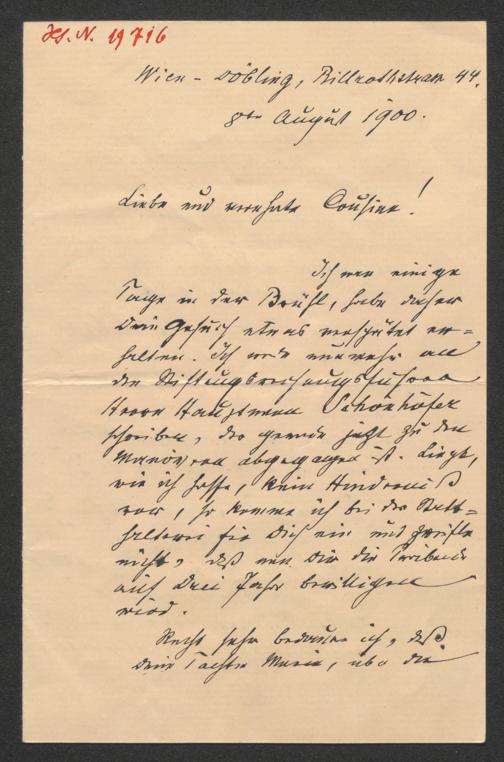 H. N. 19716
Wien - Döbling, Billrothstrasse 44.
8ten August 1900.
Liebe und verehrte Cousine!
Ich war einige
Tage in der Brühl, habe daher
Dein Gesuch etwas verspätet er=
halten. Ich werde nunmehr an
den Stiftungsrechnungsführer
Herrn Hauptmann Schönhofer
schreiben, der gerade jetzt zu den
Manövern abgegangen ist. Liegt,
wie ich hoffe, kein Hinderniß
vor, so komme ich bei der Statt=
halterei für Dich ein und zweifle
nicht, daß man Dir die
auf drei Jahre bewilligen
wird.
Recht sehr bedaure ich, daß
Deine Tochter Marie, über die